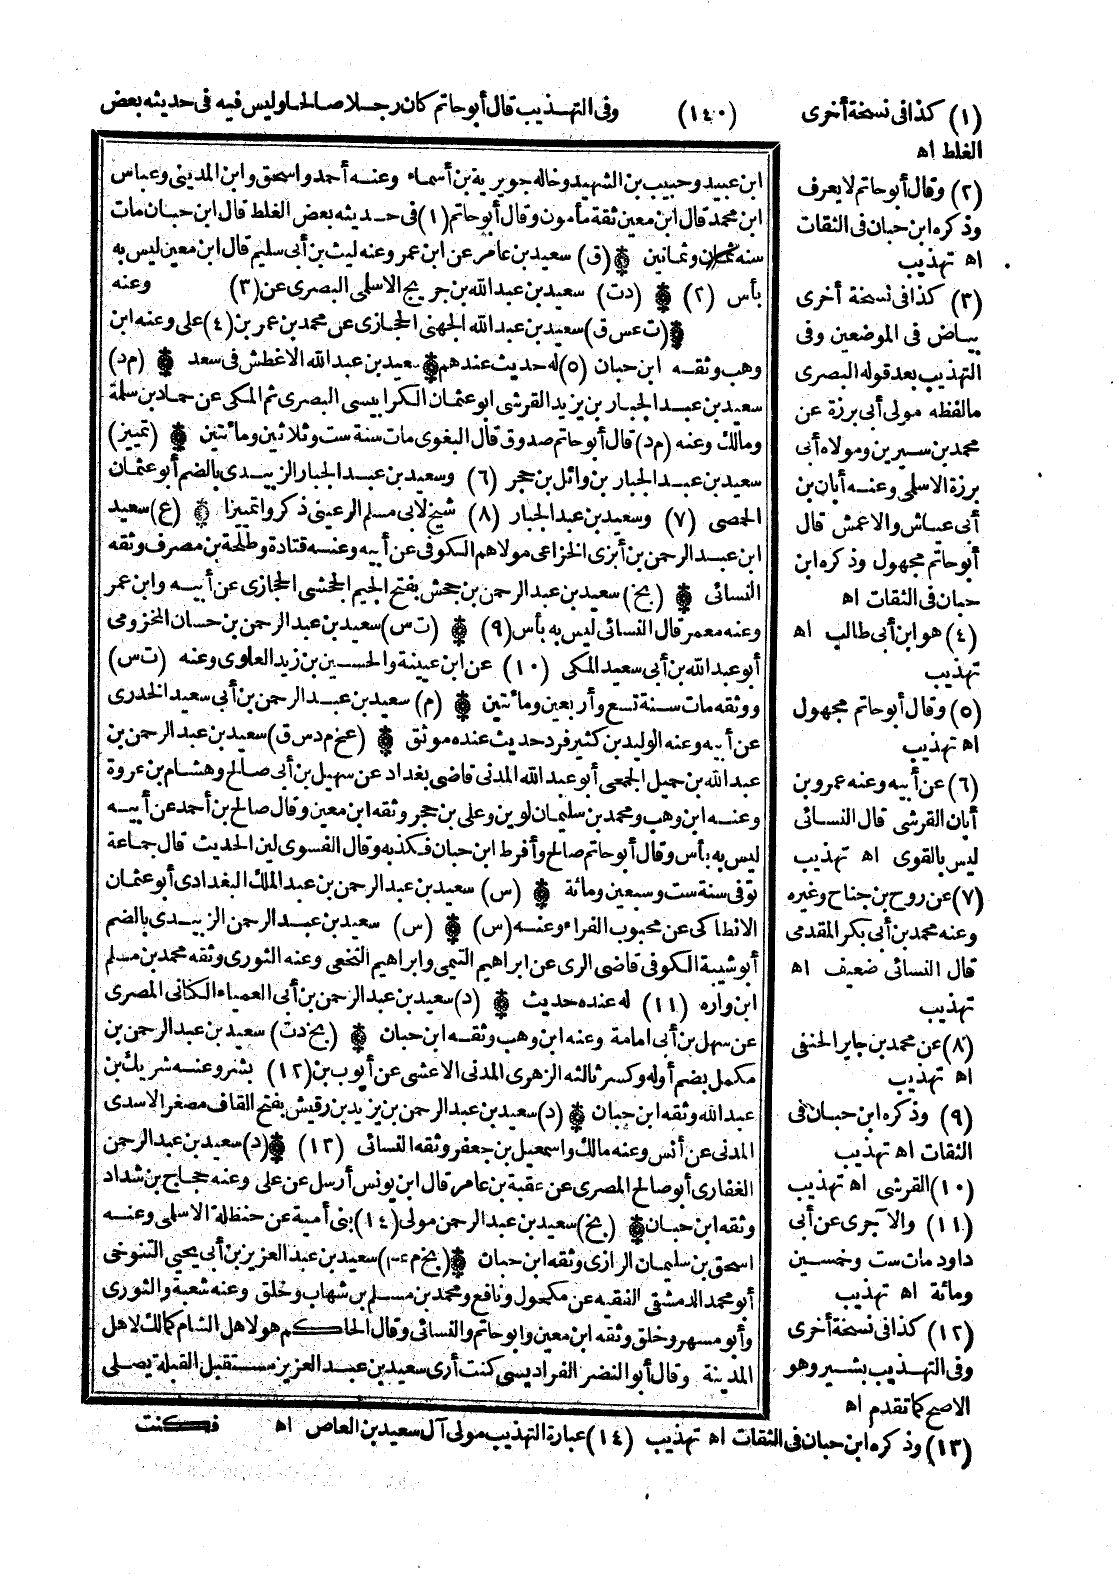 (١) كذا فى نسخة أخرى (١٤٠) وفى التهذيب قال أبو حاتم كان رجلا صالحا وليس فيه فى حديثه بعض
الغلط اه
ابن عبيد وحبيب بن الشهيد وخاله جويرية بن أسماء وعنه أحمد واسحق وابن المدينى وعباس
ابن محمد قال ابن معين ثقة مأمون وقال أبو حاتم (١) فى حديثه بعض الغلط قال ابن حبان مات
سنه ثمان وثمانين (ق) سعيد بن عامر عن ابن عمر وعنه ليث بن أبى سليم قال ابن معين ليس به
بأس (٢) (دت) سعيد بن عبد الله بن جريج الاسلمى البصرى عن (٣) وعنه
(ت عس ق) سعيد بن عبد الله الجهنى الحجازى عن محمد بن عمر بن (٤) على وعنه ابن
وهب وثقه ابن حبان (٥) له حديث عندهم سعيد بن عبد الله الاغطش فى سعد (م د)
سعيد بن عبد الجبار بن يزيد القرشى ابو عثمان الكرابيسى البصرى ثم المكى عن حماد بن سلمة
ومالك وعنه (م د) قال أبو حاتم صدوق قال البغوى مات سنة ست وثلاثين ومائتين (تمييز)
سعيد بن عبد الجبار بن وائل بن حجر (٦) وسعيد بن عبد الجبار الزبيدى بالضم أبو عثمان
الحمصى (٧) وسعيد بن عبد الجبار (٨) شيخ لابى مسلم الرعينى ذكروا تمييزا (ع) سعيد
ابن عبد الرحمن بن أبزى الخزاعى مولاهم الكوفى عن أبيه وعنه قتادة وطلحة بن مصرف وثقه
النسائى (بخ) سعيد بن عبد الرحمن بن جحش بفتح الجيم الجحشى الحجازى عن أبيه وابن عمر
وعنه معمر قال النسائى ليس به بأس (٩) (ت س) سعيد بن عبد الرحمن بن حسان المخزومى
أبو عبد الله بن أبى سعيد المكى (١٠) عن ابن عيينة والحسين بن زيد العلوى وعنه (ت س)
ووثقه مات سنة تسع وأربعين ومائتين (م) سعيد بن عبد الرحمن بن أبى سعيد الخدرى
عن أبيه وعنه الوليد بن كثير فرد حديث عنده موثق (عخ م د س ق) سعيد بن عبد الرحمن بن
عبد الله بن جميل الجمحى أبو عبد الله المدنى قاضى بغداد عن سهيل بن أبى صالح وهشام بن عروة
وعنه ابن وهب ومحمد بن سليمان لوين وعلى بن حجر وثقه ابن معين وقال صالح بن أحمد عن أبيه
ليس به بأس وقال أبو حاتم صالح وأفرط ابن حبان فكذبه وقال الفسوى لين الحديث قال جماعة
توفى سنة ست وسبعين ومائة (س) سعيد بن عبد الرحمن بن عبد الملك البغدادى أبو عثمان
الانطاكى عن محبوب الفراء وعنه (س) (س) سعيد بن عبد الرحمن الزبيدى بالضم
أبو شيبة الكوفى قاضى الرى عن ابراهيم التيمى وابراهيم النخعى وعنه الثورى وثقه محمد بن مسلم
ابن واره (١١) له عنده حديث (د) سعيد بن عبد الرحمن بن أبى العمياء الكنانى المصرى
عن سهل بن أبى امامة وعنه ابن وهب وثقه ابن حبان (بخ دت) سعيد بن عبد الرحمن بن
مكمل بضم أوله وكسر ثالثه الزهرى المدنى الاعشى عن أيوب بن (١٢) بشر وعنه شريك بن
عبد الله وثقه ابن حبان (د) سعيد بن عبد الرحمن بن يزيد بن رقيش بفتح القاف مصغر الاسدى
المدنى عن أنس وعنه مالك واسمعيل بن جعفر وثقه النسائى (١٣) (د) سعيد بن عبد الرحمن
الغفارى أبو صالح المصرى عن عقبة بن عامر قال ابن يونس أرسل عن على وعنه حجاج بن شداد
وثقه ابن حبان (بخ) سعيد بن عبد الرحمن مولى (١٤) بنى أمية عن حنظلة الاسلمى وعنه
اسحق بن سليمان الرازى وثقه ابن حبان (بخ م عم) سعيد بن عبد العزيز بن أبى يحيى التنوخى
أبو محمد الدمشقى الفقيه عن مكحول ونافع ومحمد بن مسلم بن شهاب وخلق وعنه شعبة والثورى
وأبو مسهر وخلق وثقه ابن معين وابو حاتم والنسائى وقال الحاكم هو لاهل الشام كمالك لاهل
المدينة وقال أبو النضر الفراديسى كنت أرى سعيد بن عبد العزيز مستقبل القبلة يصلى
فكنت
(٢) وقال أبو حاتم لا يعرف
وذكره ابن حبان فى الثقات
اه تهذيب
(٣) كذا فى نسخة أخرى
بياض فى الموضعين وفى
التهذيب بعد قوله البصرى
مالفظه مولى أبى برزة عن
محمد بن سيرين ومولاه أبى
برزة الاسلمى وعنه أبان بن
أبى عياش والاعمش قال
أبو حاتم مجهول وذكره ابن
حبان فى الثقات اه
(٤) هو ابن أبى طالب اه
تهذيب
(٥) وقال أبو حاتم مجهول
اه تهذيب
(٦) عن أبيه وعنه عمرو بن
أبان القرشى قال النسائى
ليس بالقوى اه تهذيب
(٧) عن روح بن جناح وغيره
وعنه محمد بن أبى بكر المقدمى
قال النسائى ضعيف اه
تهذيب
(٨) عن محمد بن جابر الحنفى
اه تهذيب
(٩) وذكره ابن حبان فى
الثقات اه تهذيب
(١٠) القرشى اه تهذيب
(١١) والآجرى عن أبى
داود مات ست وخمسين
ومائة اه تهذيب
(١٢) كذا فى نسخة أخرى
وفى التهذيب بشير وهو
الاصح كما تقدم اه
(١٣) وذكره ابن حبان فى الثقات اه تهذيب (١٤) عبارة التهذيب مولى آل سعيد بن العاص اه